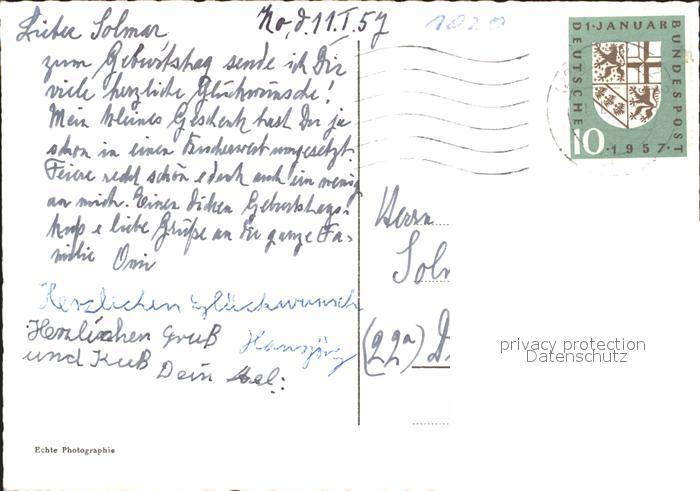 Ko, d. 11.I.57
1020
Lieber Solmar
zum Geburtstag sende ich Dir
viele herzliche Glückwünsche!
Mein kleines Geschenk hast Du ja
schon in einen umgesetzt.
Feiere recht schön & denk auch ein wenig
an mich. Einen dicken Geburtstags-
kuß & liebe Grüße an die ganze Fa-
milie Omi
Herzlichen Glückwunsch
Hansjörg
Herzlichen Gruß
und Kuß Dein
DEUTSCHE 1·JANUAR BUNDESPOST
10 ·1957·
Herrn
Soln
(22a) D
privacy protection
Datenschutz
Echte Photographie